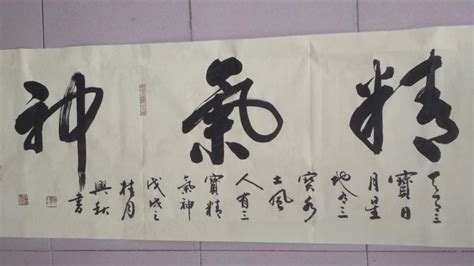 精氣神
天有三
寶日
月星
地有三
寶水
火風
人有三
寶精
氣神
戊戌之
桂月
興秋
書